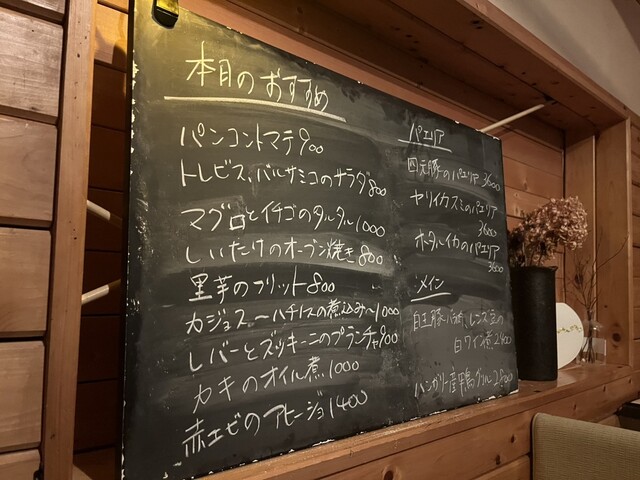 本日のおすすめ
パンコントマテ900
トレビス、バルサミコのサラダ800
マグロとイチゴのタルタル1000
しいたけのオーブン焼き800
里芋のフリット800
カジョス〜ハチノスの煮込み〜1000
レバーとズッキーニのプランチャ900
カキのオイル煮1000
赤エビのアヒージョ1400
パエリア
四元豚のパエリア3600
ヤリイカスミのパエリア
3600
ホタルイカのパエリア
3600
メイン
白ワイン煮2400
ハンガリー産鴨グリル2800